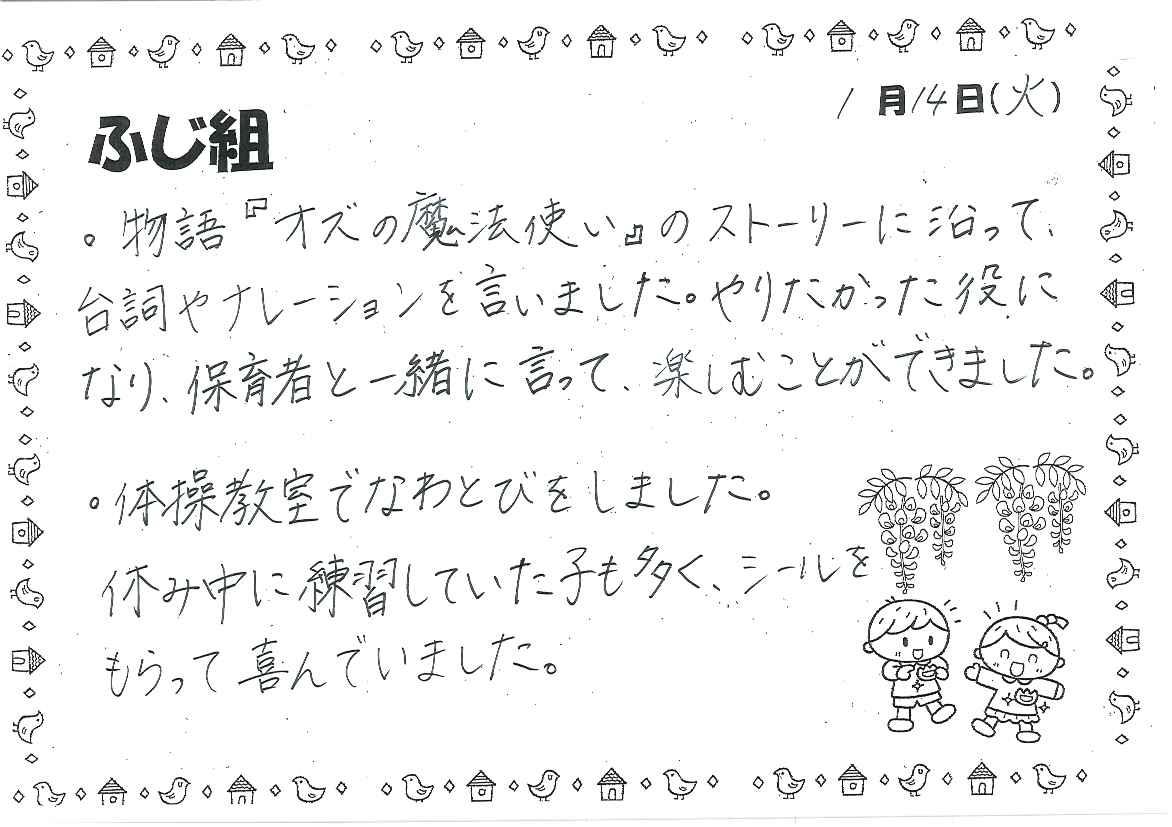 1月14日(火)
ふじ組
。物語『オズの魔法使い』のストーリーに沿って、
台詞やナレーションを言いました。やりたかった役に
なり、保育者と一緒に言って、楽しむことができました。
。体操教室でなわとびをしました。
休み中に練習していた子も多く、シールを
もらって喜んでいました。